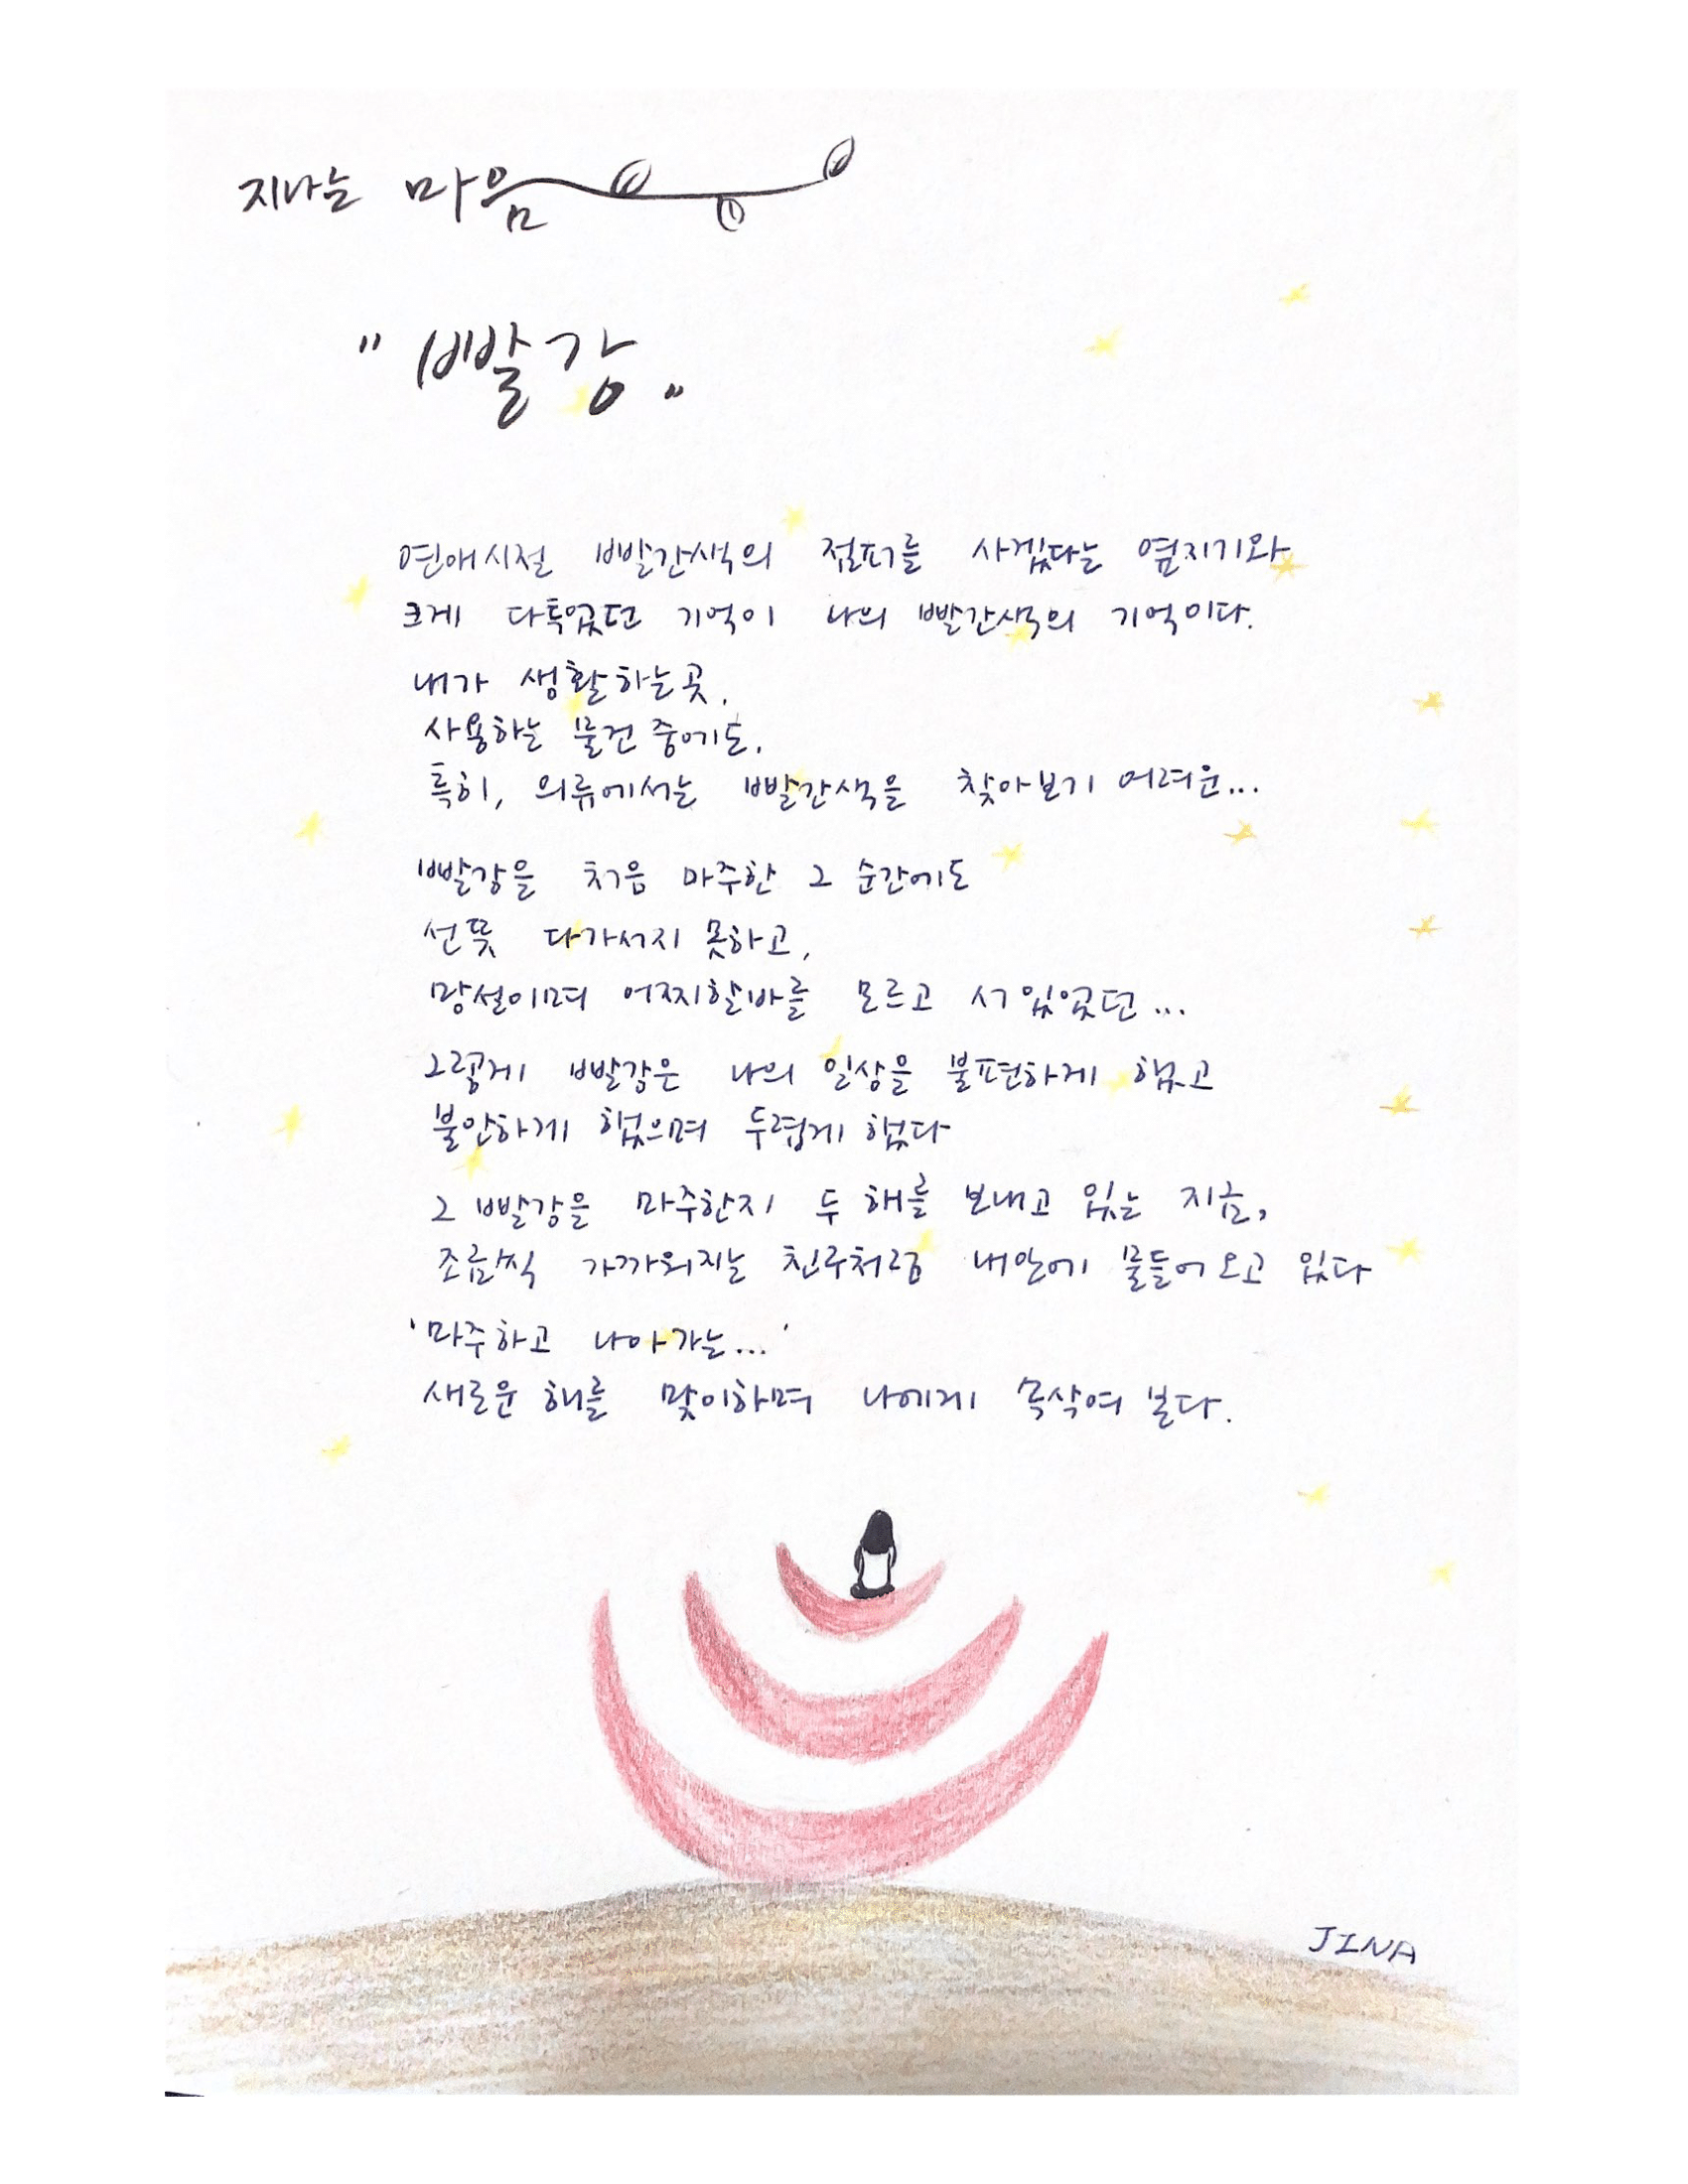 지나는 마음
"빨강"
연애시절 빨간색의 점퍼를 사겠다는 옆지기와
크게 다투었던 기억이 나의 빨간색의 기억이다.
내가 생활하는곳,
사용하는 물건 중에도,
특히, 의류에서는 빨간색을 찾아보기 어려운...
빨강을 처음 마주한 그 순간에도
선뜻 다가서지 못하고,
망설이며 어찌할바를 모르고 서있었던...
그렇게 빨강은 나의 일상을 불편하게 했고
불안하게 했으며 두렵게 했다
그 빨강을 마주한지 두 해를 보내고 있는 지금,
조금씩 가까워지는 친구처럼 내안에 물들어 오고 있다
'마주하고 나아가는...'
새로운 해를 맞이하며 나에게 속삭여 본다.
JINA